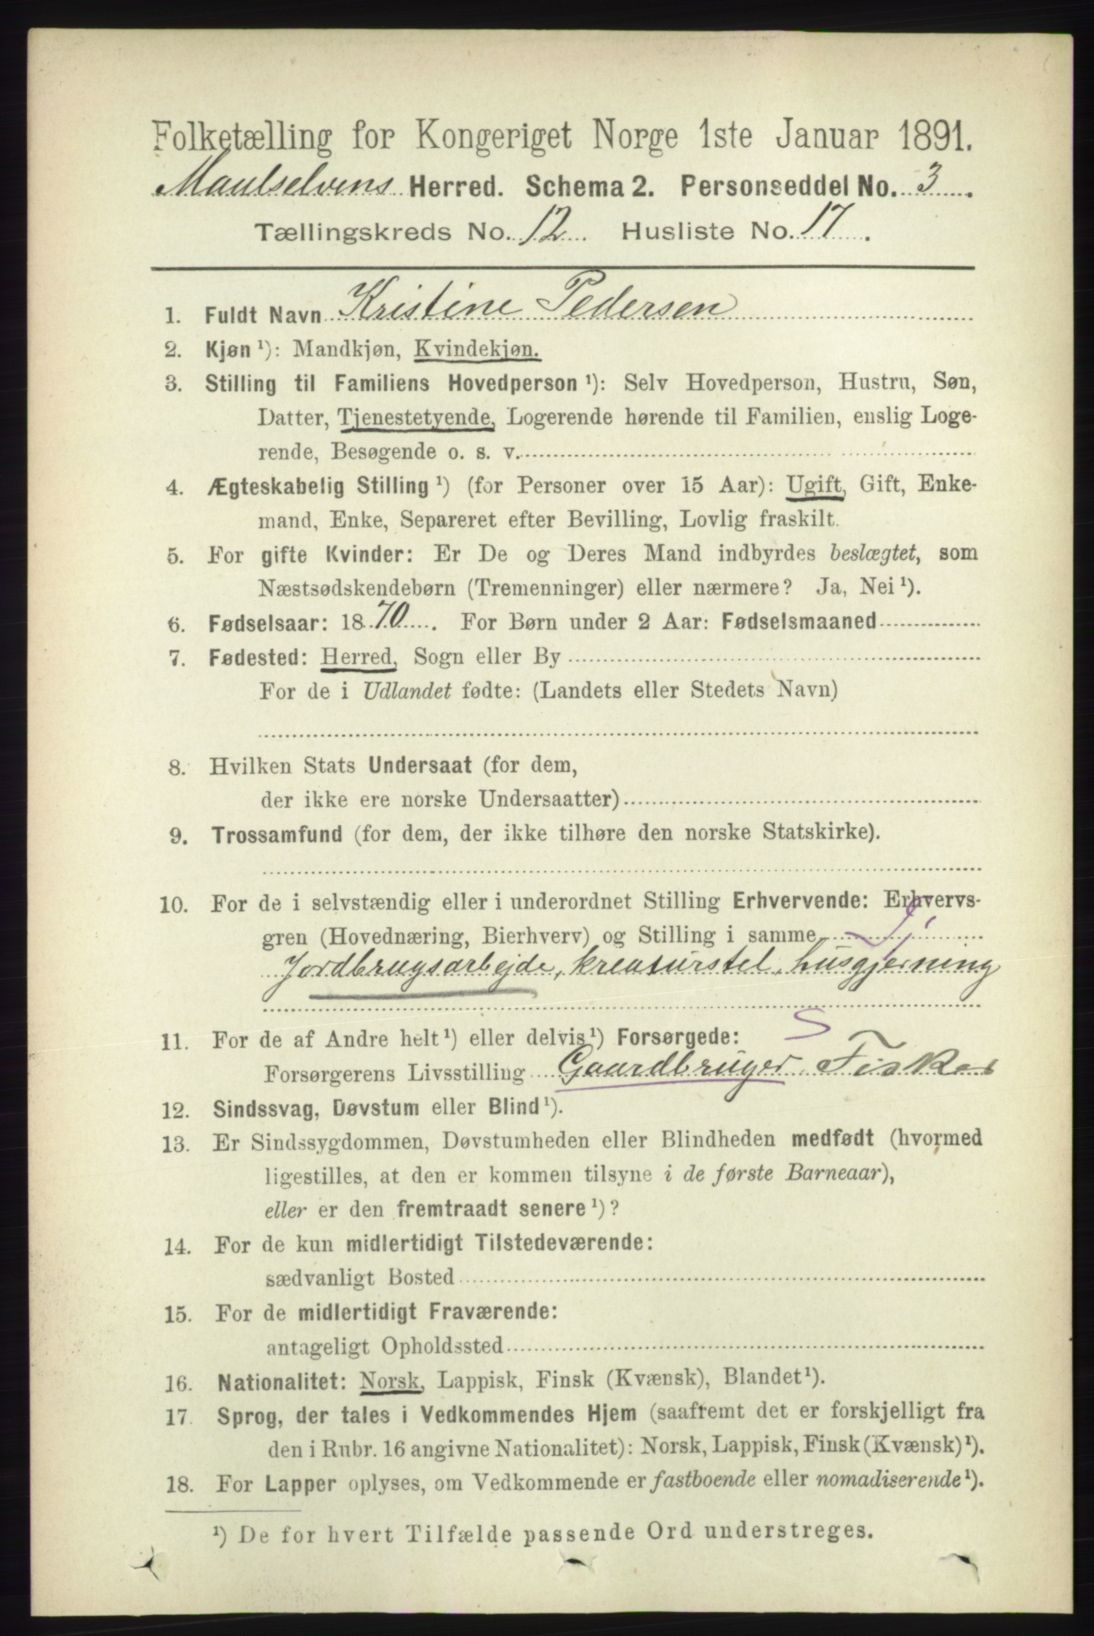 Folketælling for Kongeriget Norge 1ste Januar 1891.
Maalselvens Herred. Schema 2. Personseddel No. 3.
Tællingskreds No. 12. Husliste No. 17.
1. Fuldt Navn Kristine Pedersen
2. Kjøn ¹): Mandkjøn, Kvindekjøn.
3. Stilling til Familiens Hovedperson ¹): Selv Hovedperson, Hustru, Søn,
Datter, Tjenestetyende, Logerende hørende til Familien, enslig Loge-
rende, Besøgende o. s. v.
4. Ægteskabelig Stilling ¹) (for Personer over 15 Aar): Ugift, Gift, Enke-
mand, Enke, Separeret efter Bevilling, Lovlig fraskilt.
5. For gifte Kvinder: Er De og Deres Mand indbyrdes beslægtet, som
Næstsødskendebørn (Tremenninger) eller nærmere? Ja, Nei ¹).
6. Fødselsaar: 1870. For Børn under 2 Aar: Fødselsmaaned
7. Fødested: Herred, Sogn eller By
For de i Udlandet fødte: (Landets eller Stedets Navn)
8. Hvilken Stats Undersaat (for dem,
der ikke ere norske Undersaatter)
9. Trossamfund (for dem, der ikke tilhøre den norske Statskirke).
10. For de i selvstændig eller i underordnet Stilling Erhvervende: Erhvervs-
gren (Hovednæring, Bierhverv) og Stilling i samme Tj
Jordbrugsarbejde, kreaturstel, husgjerning
11. For de af Andre helt ¹) eller delvis ¹) Forsørgede: S
Forsørgerens Livsstilling Gaardbruger Fisker
12. Sindssvag, Døvstum eller Blind ¹).
13. Er Sindssygdommen, Døvstumheden eller Blindheden medfødt (hvormed
ligestilles, at den er kommen tilsyne i de første Barneaar),
eller er den fremtraadt senere ¹)?
14. For de kun midlertidigt Tilstedeværende:
sædvanligt Bosted
15. For de midlertidigt Fraværende:
antageligt Opholdssted
16. Nationalitet: Norsk, Lappisk, Finsk (Kvænsk), Blandet ¹).
17. Sprog, der tales i Vedkommendes Hjem (saafremt det er forskjelligt fra
den i Rubr. 16 angivne Nationalitet): Norsk, Lappisk, Finsk (Kvænsk) ¹).
18. For Lapper oplyses, om Vedkommende er fastboende eller nomadiserende ¹).
¹) De for hvert Tilfælde passende Ord understreges.